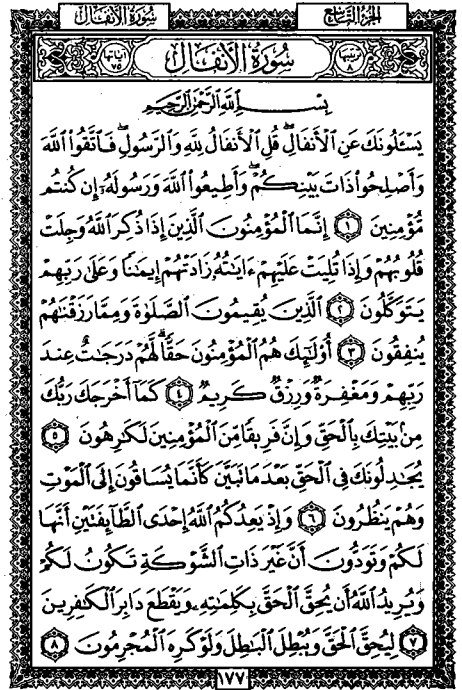 سُورَةُ الأَنفَالِ
الجُزءُ التَّاسِعُ
ترتيبها ٨ سُورَةُ الأَنفَالِ آياتها ٧٥
بِسْمِ ٱللَّهِ ٱلرَّحْمَٰنِ ٱلرَّحِيمِ
يَسْـَٔلُونَكَ عَنِ ٱلْأَنفَالِۖ قُلِ ٱلْأَنفَالُ لِلَّهِ وَٱلرَّسُولِۖ فَٱتَّقُوا۟ ٱللَّهَ
وَأَصْلِحُوا۟ ذَاتَ بَيْنِكُمْۖ وَأَطِيعُوا۟ ٱللَّهَ وَرَسُولَهُۥٓ إِن كُنتُم
مُّؤْمِنِينَ ١ إِنَّمَا ٱلْمُؤْمِنُونَ ٱلَّذِينَ إِذَا ذُكِرَ ٱللَّهُ وَجِلَتْ
قُلُوبُهُمْ وَإِذَا تُلِيَتْ عَلَيْهِمْ ءَايَٰتُهُۥ زَادَتْهُمْ إِيمَٰنًا وَعَلَىٰ رَبِّهِمْ
يَتَوَكَّلُونَ ٢ ٱلَّذِينَ يُقِيمُونَ ٱلصَّلَوٰةَ وَمِمَّا رَزَقْنَٰهُمْ
يُنفِقُونَ ٣ أُو۟لَٰٓئِكَ هُمُ ٱلْمُؤْمِنُونَ حَقًّاۚ لَّهُمْ دَرَجَٰتٌ عِندَ
رَبِّهِمْ وَمَغْفِرَةٌ وَرِزْقٌ كَرِيمٌ ٤ كَمَآ أَخْرَجَكَ رَبُّكَ
مِنۢ بَيْتِكَ بِٱلْحَقِّ وَإِنَّ فَرِيقًا مِّنَ ٱلْمُؤْمِنِينَ لَكَٰرِهُونَ ٥
يُجَٰدِلُونَكَ فِى ٱلْحَقِّ بَعْدَ مَا تَبَيَّنَ كَأَنَّمَا يُسَاقُونَ إِلَى ٱلْمَوْتِ
وَهُمْ يَنظُرُونَ ٦ وَإِذْ يَعِدُكُمُ ٱللَّهُ إِحْدَى ٱلطَّآئِفَتَيْنِ أَنَّهَا
لَكُمْ وَتَوَدُّونَ أَنَّ غَيْرَ ذَاتِ ٱلشَّوْكَةِ تَكُونُ لَكُمْ
وَيُرِيدُ ٱللَّهُ أَن يُحِقَّ ٱلْحَقَّ بِكَلِمَٰتِهِۦ وَيَقْطَعَ دَابِرَ ٱلْكَٰفِرِينَ
٧ لِيُحِقَّ ٱلْحَقَّ وَيُبْطِلَ ٱلْبَٰطِلَ وَلَوْ كَرِهَ ٱلْمُجْرِمُونَ ٨
١٧٧